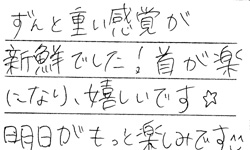 ずんと重い感覚が
新鮮でした！首が楽
になり、嬉しいです☆
明日がもっと楽しみです^^